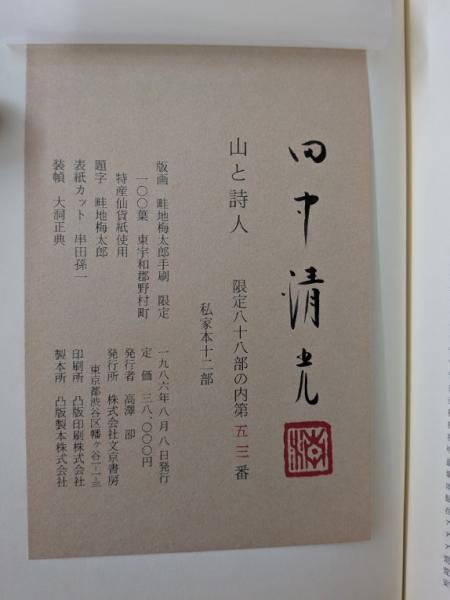 田中清光
山と詩人
限定八十八部の内第五三番
私家本十二部
版画 畦地梅太郎手刷 限定
一〇〇葉 東宇和郡野村町
特産仙貨紙使用
題字 畦地梅太郎
表紙カット 串田孫一
装幀 大洞正典
一九八六年八月八日発行
定価 三八、〇〇〇円
発行者 高澤
発行所 株式会社文京書房
東京都渋谷区幡ヶ谷一-一-三
印刷所 凸版印刷株式会社
製本所 凸版製本株式会社